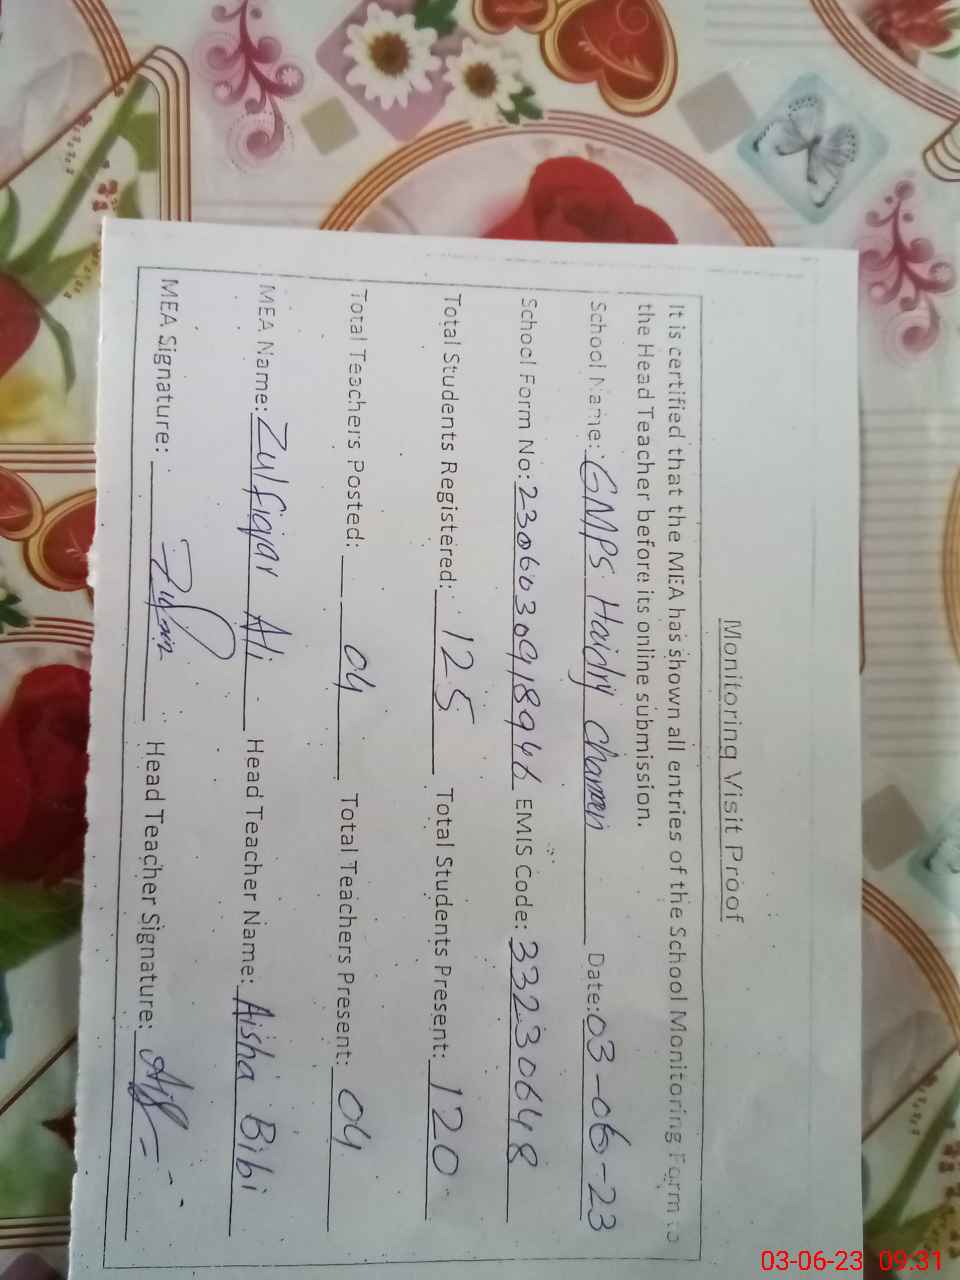 Monitoring Visit Proof
It is certified that the MEA has shown all entries of the School Monitoring Form to
the Head Teacher before its online submission.
School Name: GMPS Haidry Chamen Date: 03-06-23
School Form No: 2306030918946 EMIS Code: 33230648
Total Students Registered: 125 Total Students Present: 120
Total Teachers Posted: 04 Total Teachers Present: 04
MEA Name: Zulfiqar Ali Head Teacher Name: Aisha Bibi
MEA Signature: Head Teacher Signature:
03-06-23 09:31